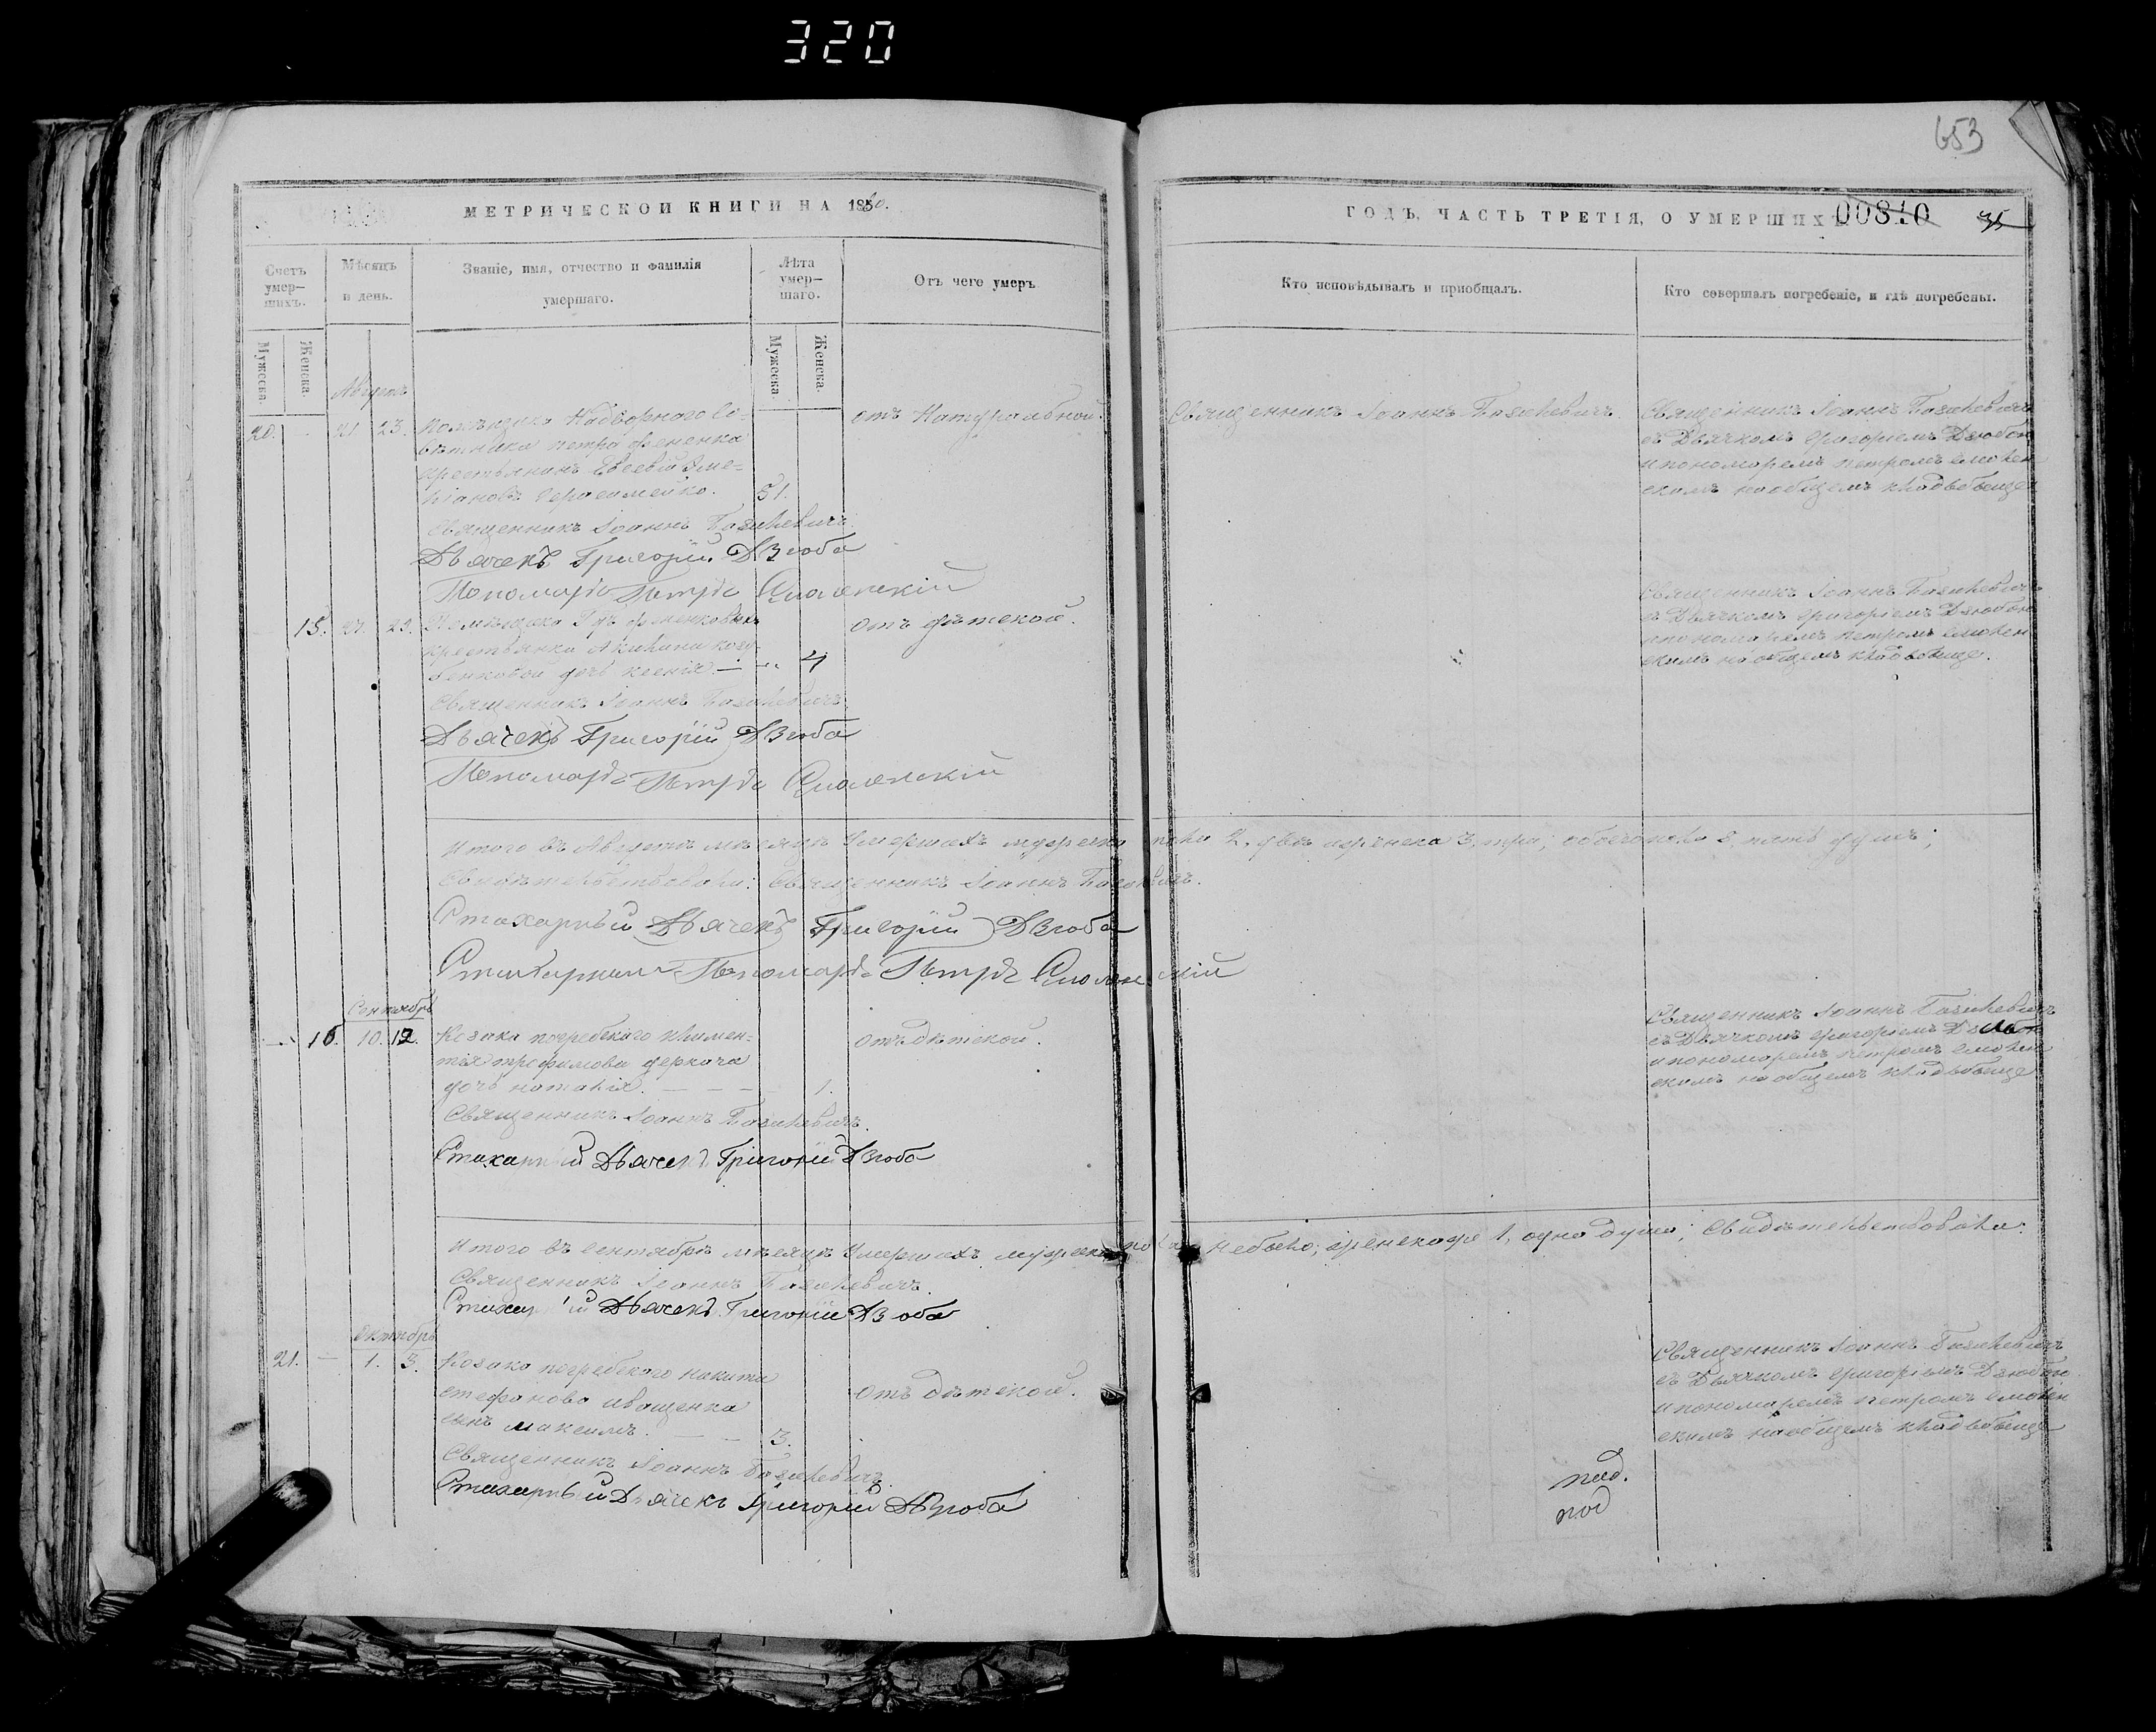 320
653
МЕТРИЧЕСКОЙ КНИГИ НА 1860.
Счетъ умер-шихъ.
Мѣсяцъ и день.
Званіе, имя, отчество и фамилія умершаго.
Лѣта умер-шаго.
Отъ чего умеръ
Мужеска.
Женска.
Мужеска
Женска.
Августъ
20. - 21 23. Помѣщика Надворнаго Со-
вѣтника Петра
крестьянинъ Евсевій Эме-
ліановъ Герасимейко. 51.
отъ Натуральной.
Священникъ Іоаннъ Базилевичъ
Дьячекъ Григорій Дзюба
Пономарь Петръ Смоленскій
15. 27. 29. Помѣщика
крестьянки Акилины
дочь Ксенія. — 4
отъ дѣтской.
Священникъ Іоаннъ Базилевичъ
Дьячекъ Григорій Дзюба
Пономарь Петръ Смоленскій
Итого въ Августѣ мѣсяцѣ Умершихъ мужеска пола 2, два женска 3, три; обоего пола 5 пять душъ;
Свидѣтельствовали: Священникъ Іоаннъ Базилевичъ.
Стихарный Дьячекъ Григорій Дзюба
Стихарный Пономарь Петръ Смоленскій
Сентябрь
16. 10. 12. Козака погребскаго Климен-
тія Трофимова Деркача
дочь Наталія. — — — 1.
отъ дѣтской.
Священникъ Іоаннъ Базилевичъ.
Стихарный Дьячекъ Григорій Дзюба
Итого въ Сентябрѣ мѣсяцѣ Умершихъ мужеска пола небыло; женска же 1, одна душа; Свидѣтельствовали:
Священникъ Іоаннъ Базилевичъ.
Стихарный Дьячекъ Григорій Дзюба
Октябрь
21. — 1. 3. Козака погребскаго Никити
Стефанова Иващенка
сынъ Максимъ. — — 3.
отъ дѣтской.
Священникъ Іоаннъ Базилевичъ.
Стихарный Дьячекъ Григорій Дзюба
ГОДЪ, ЧАСТЬ ТРЕТІЯ, О УМЕРШИХЪ
00810
35
Кто исповѣдывалъ и пріобщалъ.
Кто совершалъ погребеніе, и гдѣ погребены.
Священникъ Іоаннъ Базилевичъ.
Священникъ Іоаннъ Базилевичъ
съ Дьячкомъ Григоріемъ Дзюбою
и пономаремъ Петромъ Смолен
скимъ на общемъ кладбовище
Священникъ Іоаннъ Базилевичъ
съ Дьячкомъ Григоріемъ Дзюбою
и пономаремъ Петромъ Смолен
скимъ на общемъ кладбовище.
Священникъ Іоаннъ Базилевичъ
съ Дьячкомъ Григоріемъ Дзюбою
и пономаремъ Петромъ Смолен
скимъ на общемъ кладбовище
Священникъ Іоаннъ Базилевичъ
съ Дьячкомъ Григоріемъ Дзюбою
и пономаремъ Петромъ Смолен
скимъ на общемъ кладбовище
под.
под